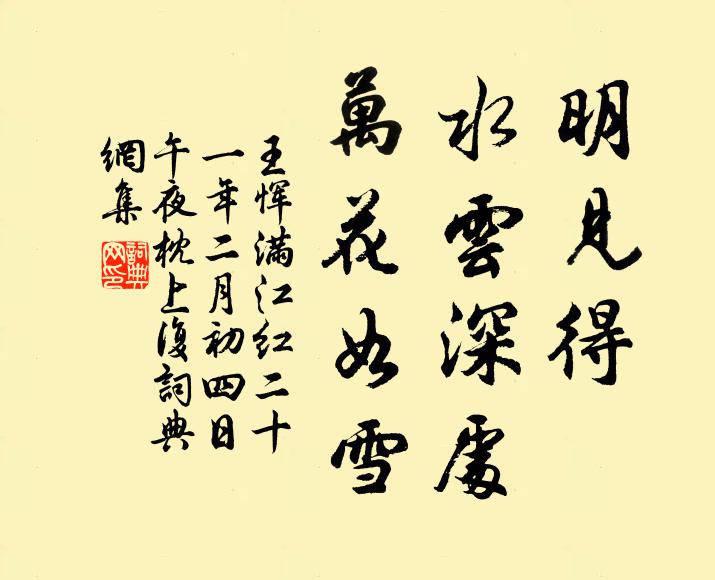 明見得
水雲深處
萬花如雪
王惲滿江红二十
一年二月初四日
午夜枕上復詞典
網集
詞典
网印